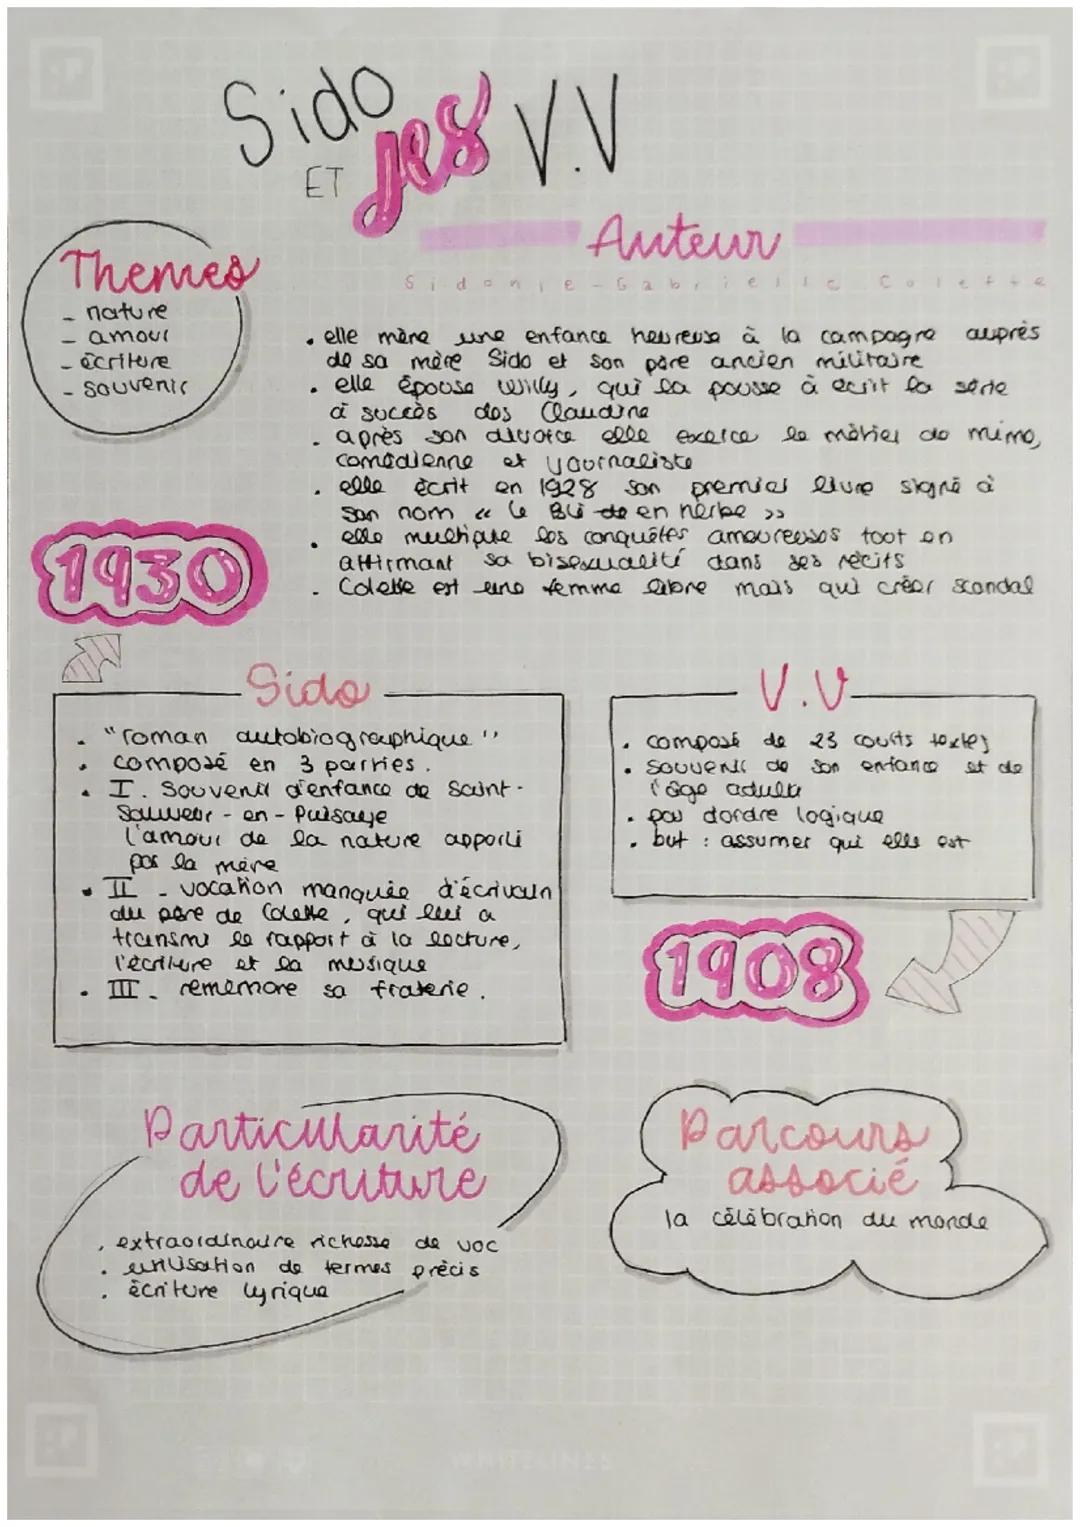 Sido
ET les V.V
Auteur
Sidonie-Gabrielle Colette
Themes
- nature
- amour
- écriture
- souvenir
. elle mène une enfance heureuse à la campagne auprès
de sa mère Sido et son père ancien militaire
. elle épouse Willy, qui la pousse à ecrit la série
à succès des Claudine
. après son divorce elle exerce le métier de mime,
comédienne et journaliste
. elle écrit en 1928 son premier livre signé à
son nom « le Blé en herbe »
. elle multiplie les conquêtes amoureuses tout en
affirmant sa bisexualité dans ses récits
. Colette est une femme libre mais qui créer scandal
1930
Sido
. "roman autobiographique"
. composé en 3 parties.
. I. Souvenir d'enfance de Saint-
Sauveur-en-Puisaye
l'amour de la nature apporté
par la mère
. II - vocation manquée d'écrivain
du père de Colette, qui lui a
transmi le rapport à la lecture,
l'écriture et la musique
. III - remémore sa fraterie.
V.V
. composé de 23 courts textes
. souvenir de son enfance et de
l'âge adulte
. pas dordre logique
. but : assumer qui elle est
1908
Particularité
de l'écriture
. extraordinaire richesse de voc
. utilisation de termes précis
. écriture lyrique
Parcours
associé
la célébration du monde
WHITELINES